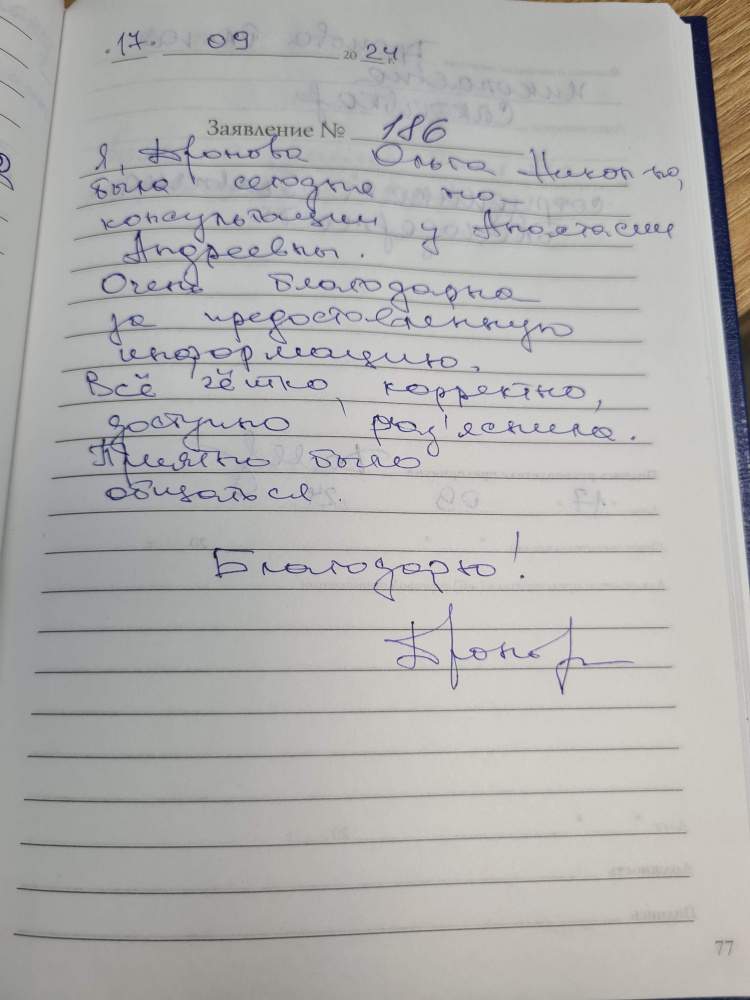 17. 09 2024
Заявление № 186
Я, Дронова Ольга Никол-на,
была сегодня на
консультации у Анастасии
Андреевны.
Очень благодарна
за предоставленную
информацию.
Всё чётко, корректно,
доступно раз'яснила.
Приятно было
общаться.
Благодарю!
77